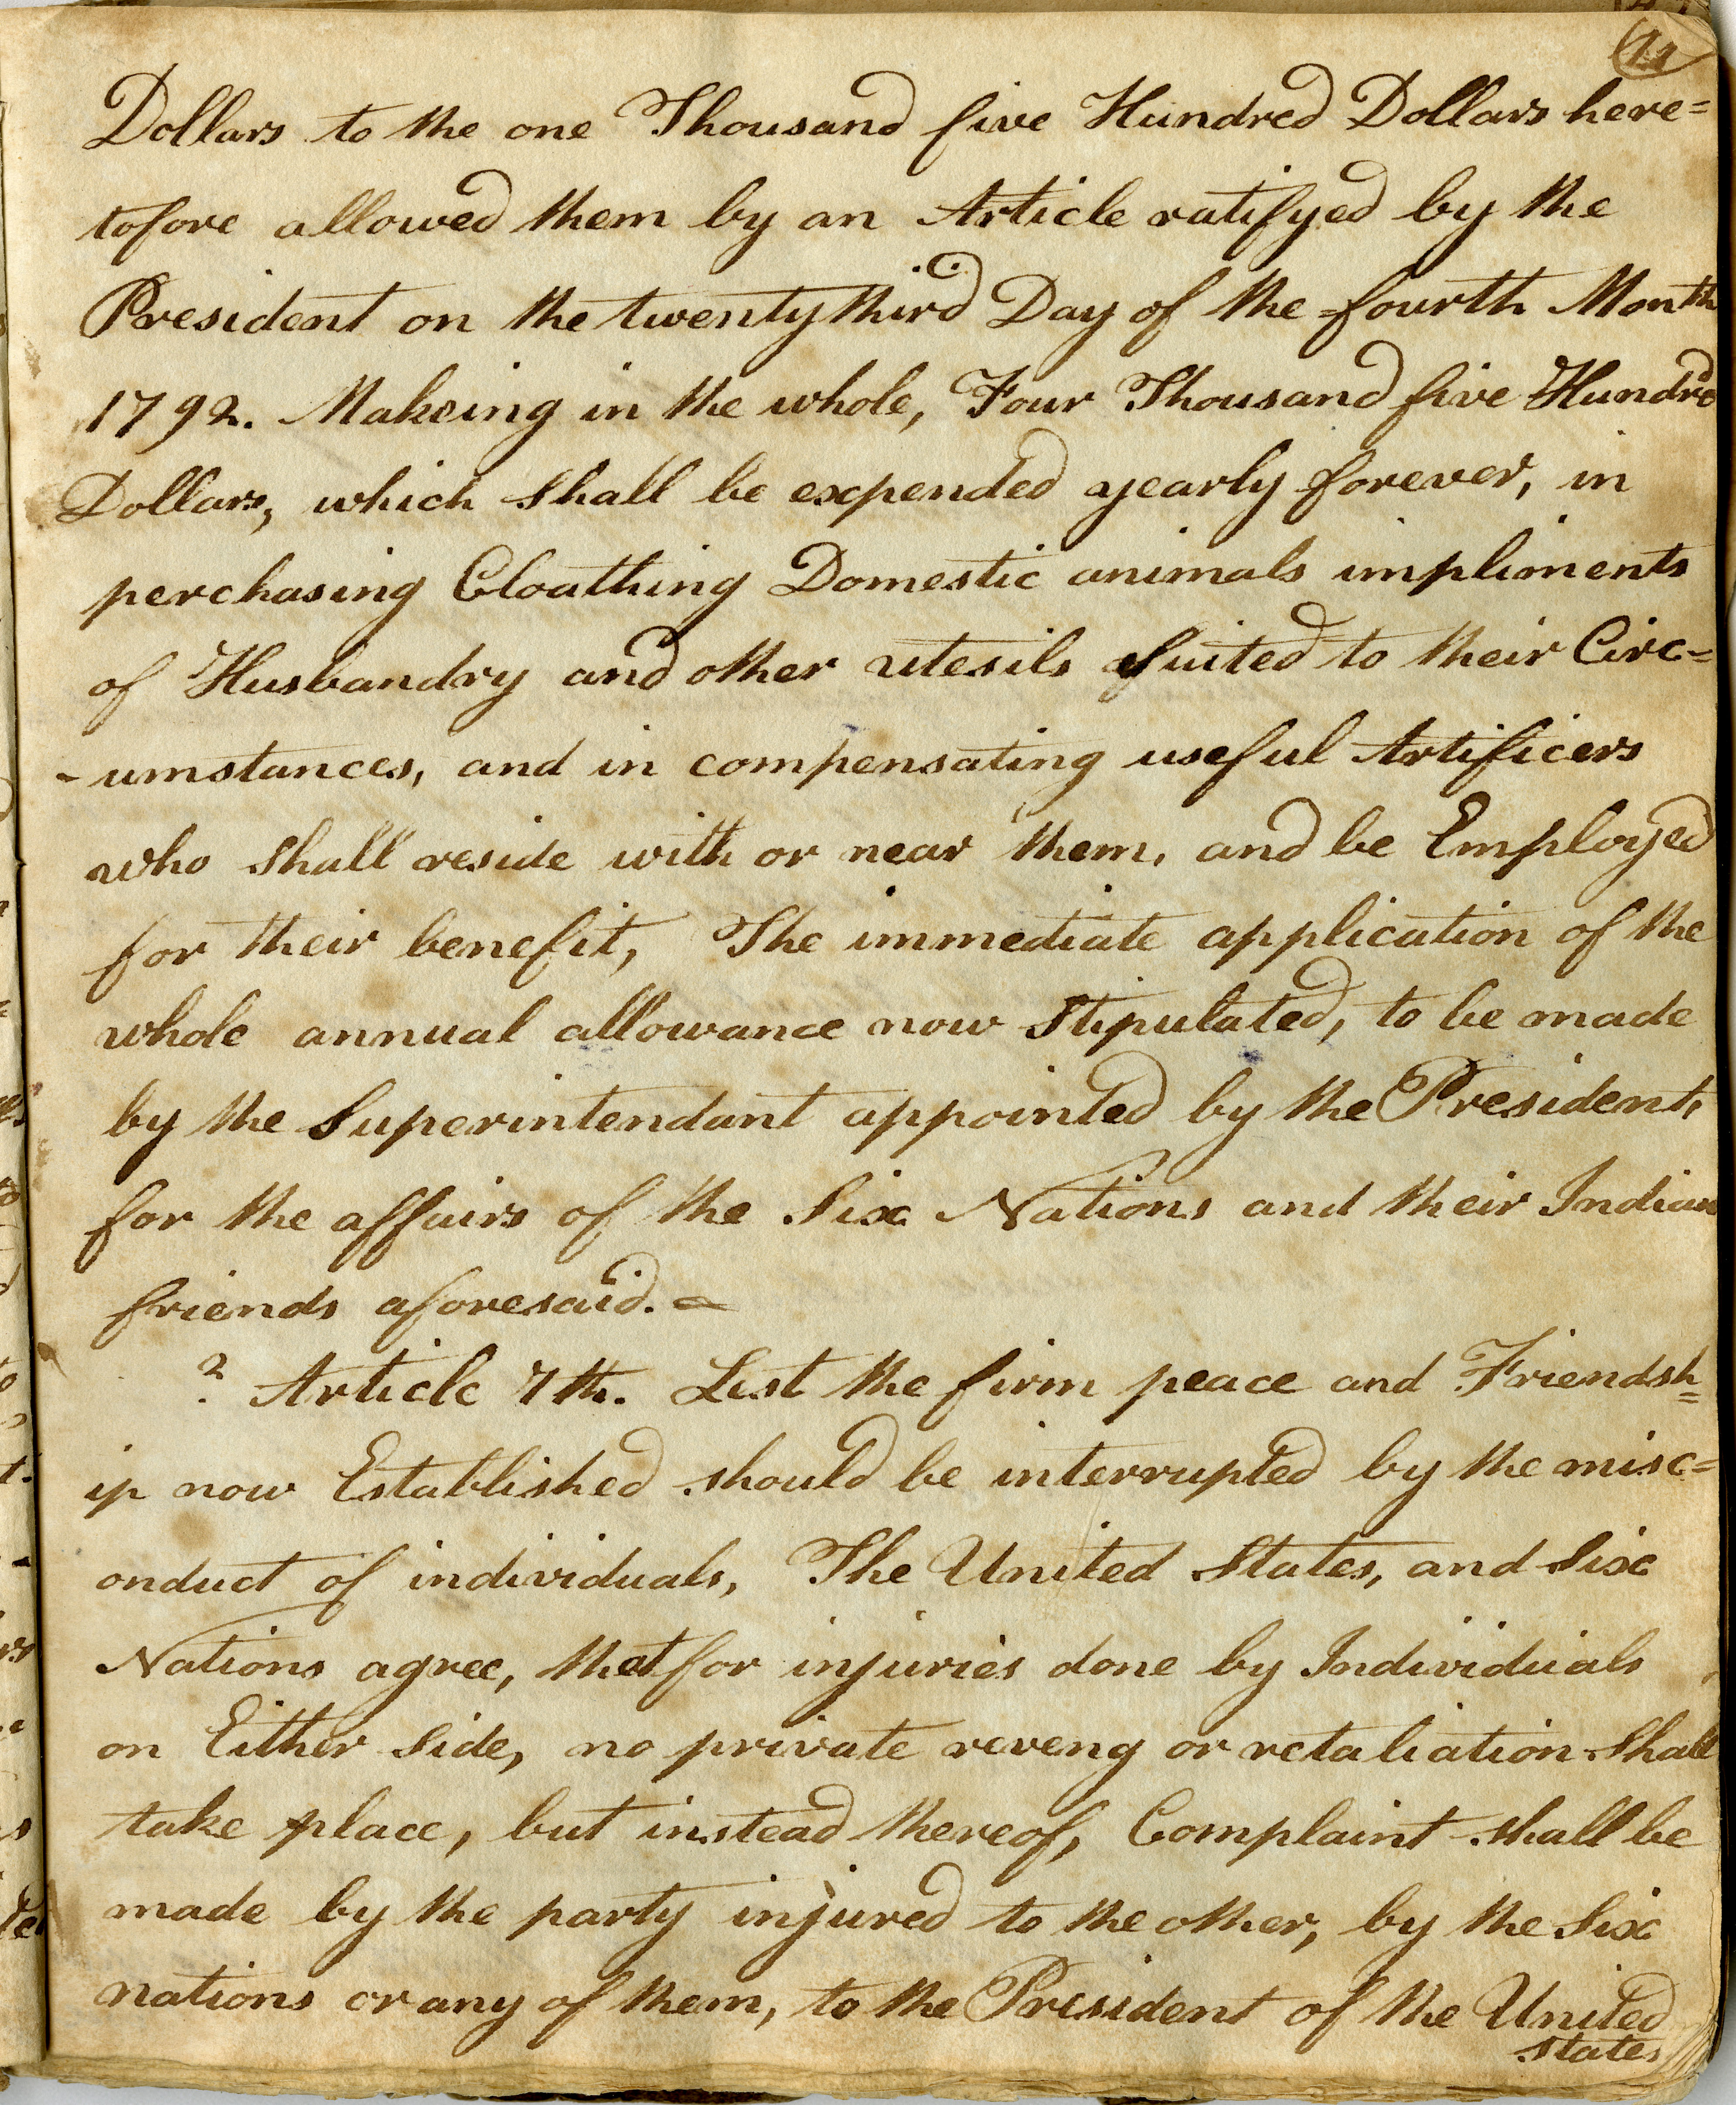 Dollars to the one Thousand five Hundred Dollars here=
tofore allowed them by an Article ratifyed by the
President on the twenty third Day of the fourth Month
1792. Makeing in the whole, Four Thousand five Hundred
Dollars, which shall be expended yearly forever, in
perchasing Cloathing Domestic animals impliments
of Husbandry and other utesils suited to their Circ=
-umstances, and in compensating useful Artificers
who shall reside with or near them, and be Employed
for their benefit, The immediate application of the
whole annual allowance now Stipulated, to be made
by the Superintendant appointed by the President,
for the affairs of the Six Nations and their Indian
friends aforesaid. —
? Article 7th. Lest the firm peace and Friendsh=
ip now Established should be interrupted by the misc=
onduct of individuals, The United States, and Six
Nations agree, that for injuries done by Individuals
on Either Side, no private reveng or retaliation shall
take place, but instead thereof, Complaint shall be
made by the party injured to the other, by the Six
nations or any of them, to the President of the United
States